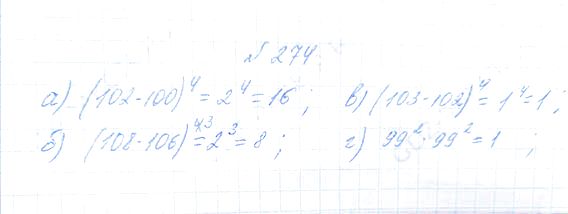 № 274
а) (102-100)⁴ = 2⁴ = 16 ; в) (103-102)⁴ = 1⁴ = 1 ;
б) (108-106)³ = 2³ = 8 ; г) 99² : 99² = 1 ;